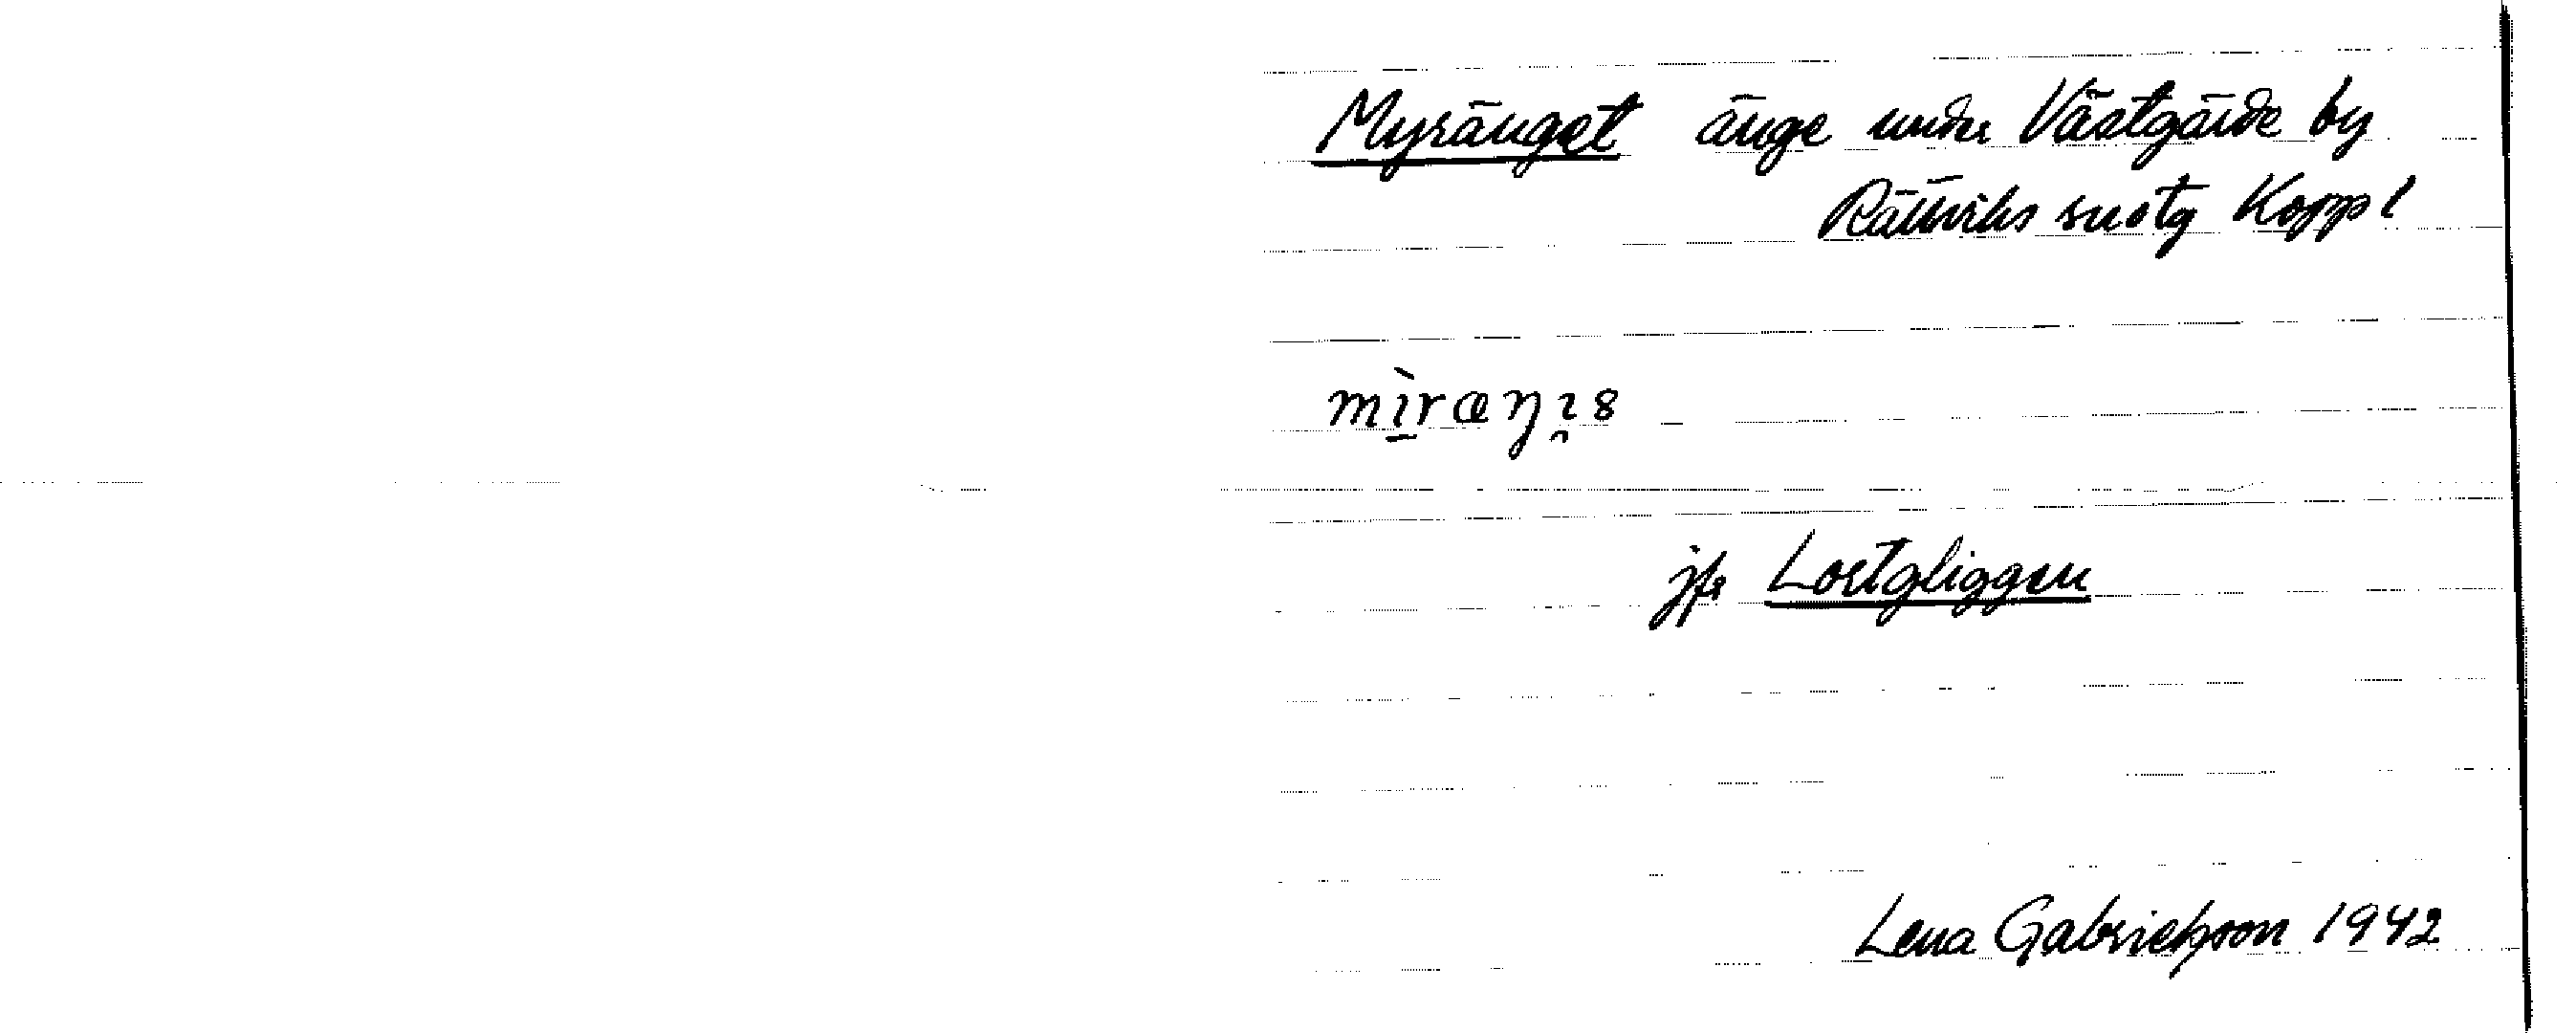 Myränget änge under Västgärde by
Rättviks snstg Koppl
mìræŋıs
jfr Lortgliggen
Lena Gabrielsson 1942